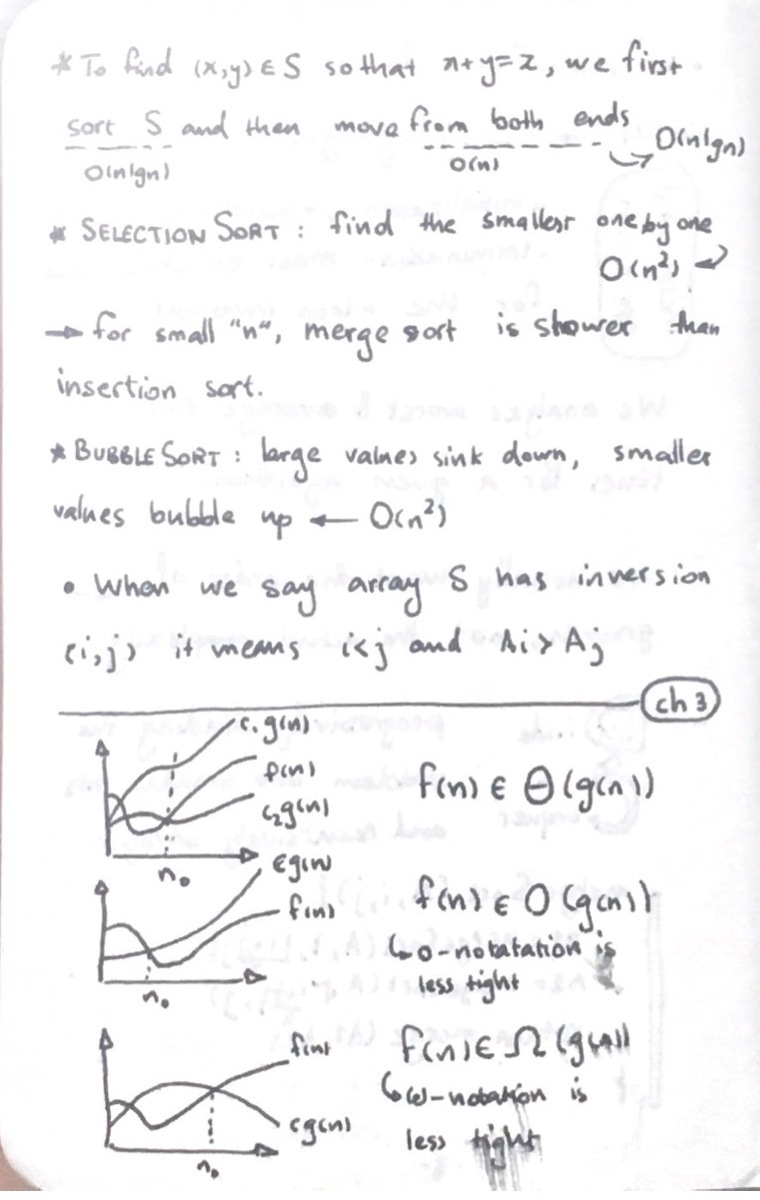 * To find (x,y) ∈ S so that x+y=z, we first
sort S and then move from both ends
O(nlgn) O(n) → O(nlgn)
* SELECTION SORT : find the smallest one by one
O(n²) ↵
→ for small "n", merge sort is slower than
insertion sort.
* BUBBLE SORT : large values sink down, smaller
values bubble up ← O(n²)
• When we say array S has inversion
(i,j) it means i<j and Ai > Aj
ch 3
c₁g(n)
f(n)
c₂g(n)
n₀
f(n) ∈ Θ(g(n))
cg(n)
f(n)
n₀
f(n) ∈ O(g(n))
↳ o-notatation is
less tight
f(n)
cg(n)
n₀
f(n) ∈ Ω(g(n))
↳ ω-notation is
less tight